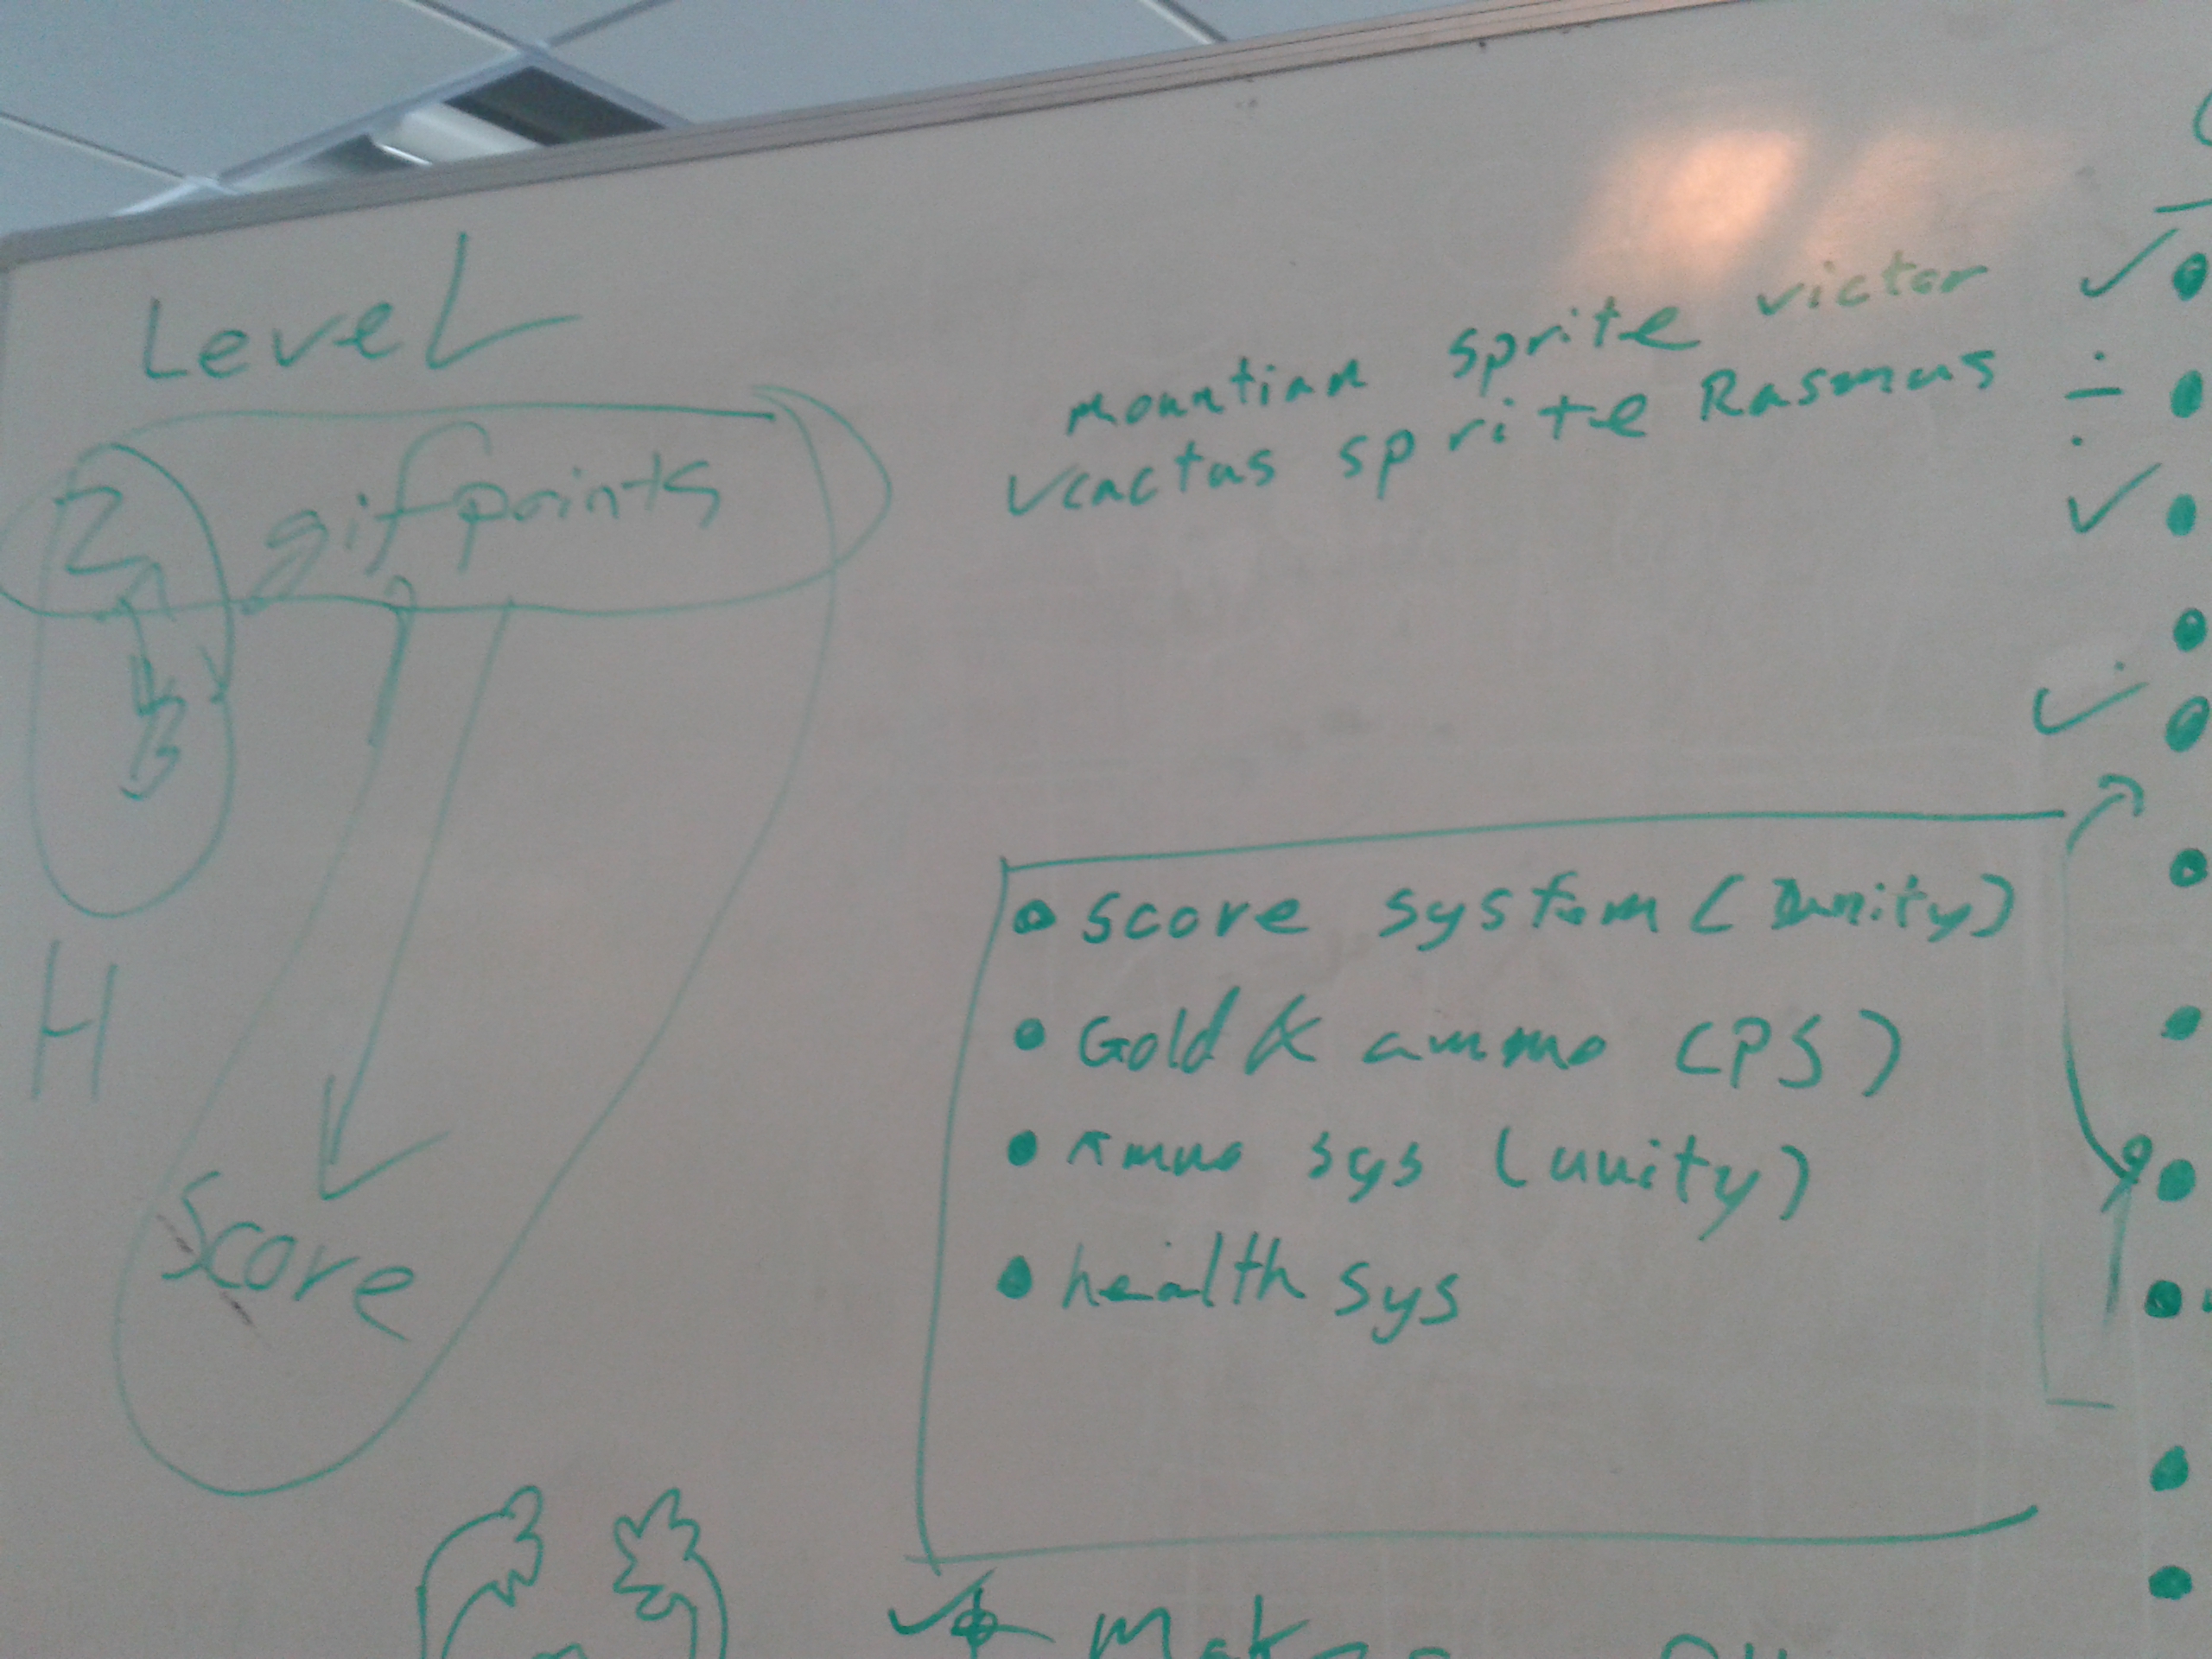 Level
Z gif points
B
H
Score
mountian sprite victor
cactus sprite Rasmus
score system (unity)
Gold & ammo (PS)
Ammo sys (unity)
health sys